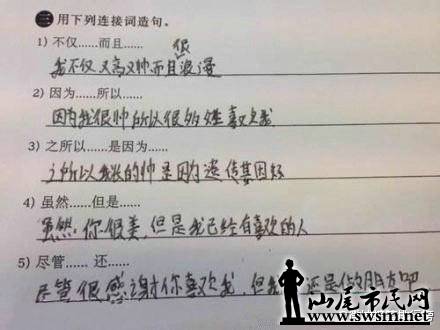 三 用下列连接词造句。
1) 不仅……而且……
我不仅又高又帅而且很浪漫
2) 因为……所以……
因为我很帅所以很多姓喜欢我
3) 之所以……是因为……
之所以我长的帅是因为遗传基因好
4) 虽然……但是……
虽然你很美,但是我已经有喜欢的人
5) 尽管…… 还……
尽管很感谢你喜欢我,但我 还是做朋友吧
山尾市民网
www.swsm.net